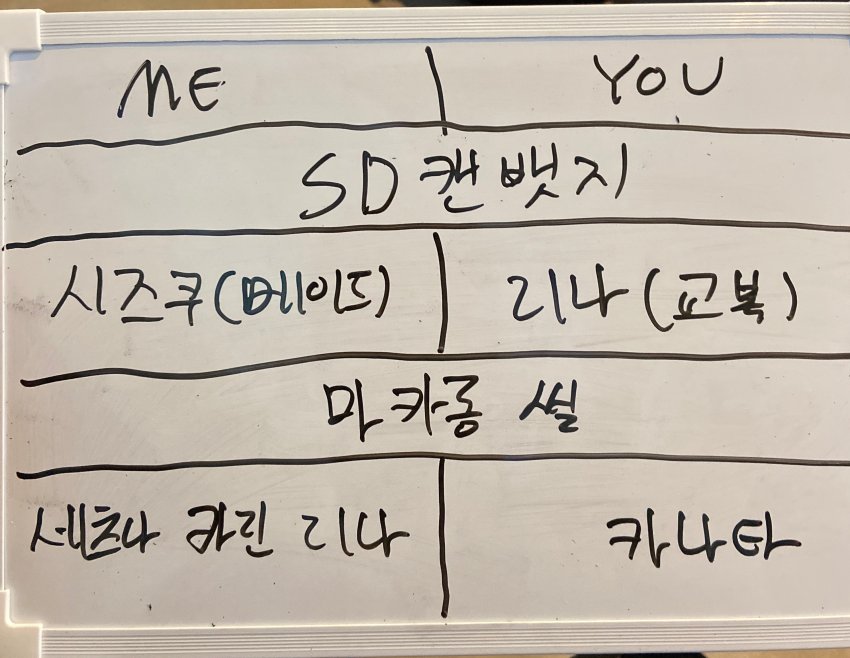 ME YOU
SD 캔뱃지
시즈쿠(메이드) 리나(교복)
마카롱 씰
세츠나 카린 리나 카나타